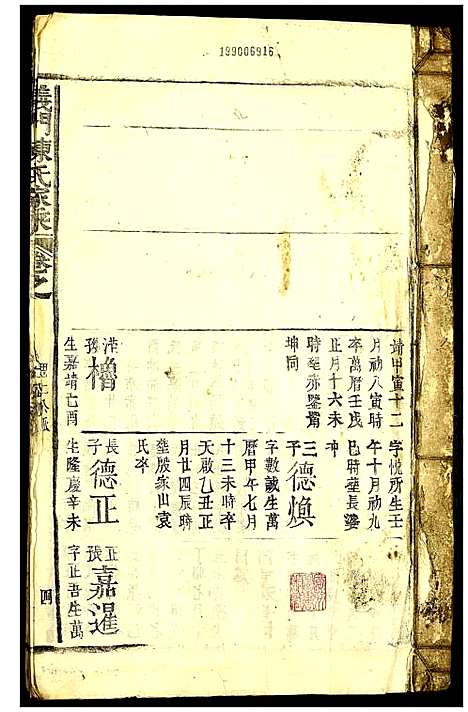 199006916
義門陳氏家乘
卷之
靖甲寅十二
月初八寅時
卒萬曆壬戌
正月十六未
時塟赤鑒觜
坤同
滢
孫
櫓
生嘉靖乙酉
字悅所生壬
午十月初九
巳時塟長婆
冲
三
子
德煥
字數誠生萬
曆甲午七月
十三未時卒
天啟乙丑正
月廿四辰時
塟殷家山袁
氏卒
長
子
德正
生隆慶辛未
正
長
嘉暹
字止吾生萬
四